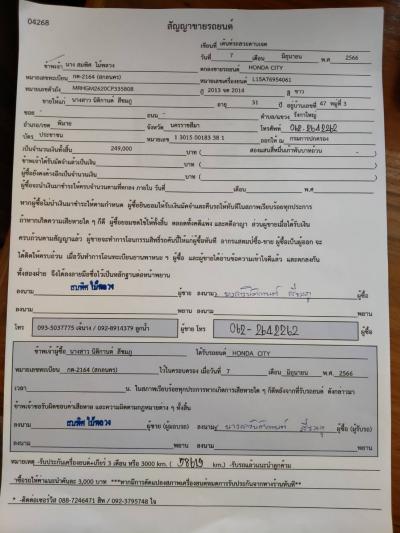 04268
สัญญาขายรถยนต์
เขียนที่ เต็นท์รถสวยตามเจต
วันที่ 7 เดือน มิถุนายน พ.ศ 2566
ข้าพเจ้า นาง สมพิศ ไม้พลวง ตกลงขายรถยนต์ HONDA CITY
หมายเลขทะเบียน กต-2164 (สกลนคร) หมายเลขเครื่องยนต์ L15A76954061
หมายเลขตัวถัง MRHGM2620CP335808 ปี 2013 จด 2014 สี ขาว
ขายให้แก่ นางสาว นิติกานต์ สีชมภู อายุ 31 ปี อยู่บ้านเลขที่ 47 หมู่ที่ 3
ซอย - ถนน - ตำบล/แขวง รังกาใหญ่
อำเภอ/เขต พิมาย จังหวัด นครราชสีมา โทรศัพท์ 062-2642262
บัตร ประชาชน หมายเลข 1 3015 00183 38 1 ออกให้ ณ กรมการปกครอง
เป็นจำนวนเงินทั้งสิ้น 249,000 บาท ( สองแสนสี่หมื่นเก้าพันบาทถ้วน )
ข้าพเจ้าได้รับมัดจำแล้วเป็นเงิน บาท ( )
ผู้ซื้อยังคงค้างอีกเป็นจำนวนเงิน บาท ( )
ผู้ซื้อจะนำเงินมาชำระให้ครบจำนวนตามที่ตกลง ภายใน วันที่ เดือน พ.ศ
หากผู้ซื้อไม่นำเงินมาชำระให้ตามกำหนด ผู้ซื้อยินยอมให้ริบเงินมัดจำและคืนรถให้ทันทีในสภาพเรียบร้อยทุกประการ
ถ้าหากเกิดความเสียหายใด ๆ ก็ดี ผู้ซื้อยอมชดใช้ให้ทั้งสิ้น ตลอดทั้งคดีแพ่ง และคดีอาญา ส่วนผู้ขายเมื่อได้รับเงิน
ครบถ้วนตามสัญญาแล้ว ผู้ขายจะทำการโอนกรรมสิทธิ์รถคันนี้ให้แก่ผู้ซื้อทันที
ทั้งสองฝ่าย จึงได้ลงลายมือชื่อไว้เป็นหลักฐานต่อหน้าพยาน
ลงนาม สมพิศ ไม้พลวง ผู้ขาย ลงนาม นางสาวนิติกานต์ สีชมภู ผู้ซื้อ
ลงนาม พยาน ลงนาม พยาน
โทร 093-5037775 / 092-8914379 ผู้ขาย โทร 062-2642262 ผู้ซื้อ
ข้าพเจ้าผู้ซื้อ นางสาว นิติกานต์ สีชมภู ได้รับรถยนต์ HONDA CITY
หมายเลขทะเบียน กต-2164 (สกลนคร) ไว้ในครอบครอง เมื่อวันที่ 7 เดือน มิถุนายน พ.ศ. 2566
เวลา น. ในสภาพเรียบร้อยทุกประการหากเกิดการเสียหายใด ๆ ก็ดีหลังจากที่รับรถยนต์ ดังกล่าวมา
ข้าพเจ้าขอรับผิดชอบค่าเสียหาย และความผิดตามกฎหมายต่าง ๆ ทั้งสิ้น
ลงนาม สมพิศ ไม้พลวง ผู้ขาย (ผู้มอบรถ) ลงนาม นางสาวนิติกานต์ สีชมภู ผู้ซื้อ (ผู้รับรถ)
ลงนาม พยาน ลงนาม พยาน
หมายเหตุ -รับประกันเครื่องยนต์+เกียร์ 3 เดือน หรือ 3000 km. ( km.) -รับรถแล้วแนะนำลูกค้า
*ซื้อรถให้ค่าแนะนำคันละ 3,000 บาท ***หากมีการดัดแปลงสภาพเครื่องยนต์หมดการรับประกันจากทางร้านทันที**
* -ติดต่อเซอร์วิส 088-7246471 / 092-3795748